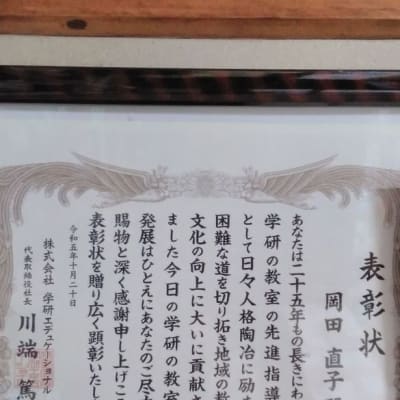 表彰状
岡田 直子
あなたは二十五年もの長きにわ
学研の教室の先進指導
として日々人格陶冶に励ま
困難な道を切り拓き地域の教
文化の向上に大いに貢献さ
ました今日の学研の教室
発展はひとえにあなたのご尽力
賜物と深く感謝申し上げこ
表彰状を贈り広く顕彰いたし
令和五年十月二十日
株式会社 学研エデュケーショナル
代表取締役社長 川端 篤